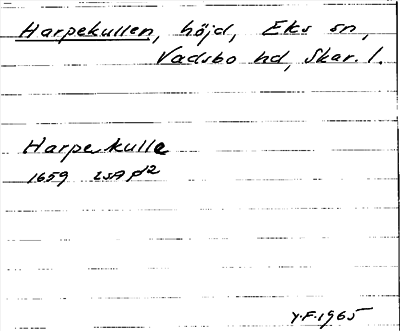 Harpekullen, höjd, Eks sn,
Vadsbo hd, Skar. l.
Harpekulle
1659 LSA p2
Y.F. 1965